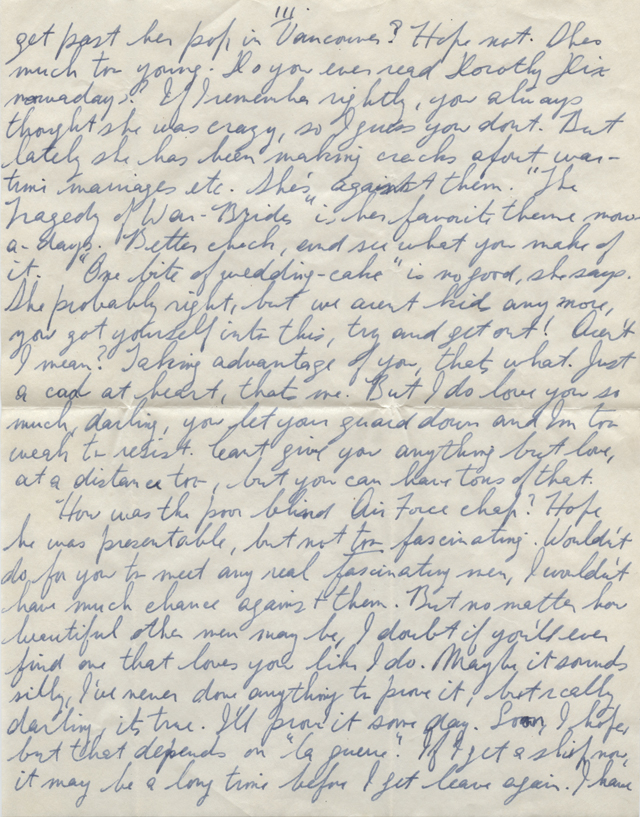 III.
get past her pop, in Vancouver? Hope not. Shes
much too young. Do you ever read Dorothy Dix
nowadays? If I remember rightly, you always
thought she was crazy, so I guess you dont. But
lately she has been making cracks about war-
time marriages etc. She's against them. "The
Tragedy of War-Brides" is her favorite theme now-
a-days. Better check, and see what you make of
it. "One bite of wedding-cake" is no good, she says.
She probably right, but we aren't kids any more,
you got yourself into this, try and get out! Aren't
I mean? Taking advantage of you, thats what. Just
a cad at heart, thats me. But I do love you so
much, darling, you let your guard down and Im too
weak to resist. Cant give you anything but love,
at a distance too, but you can have tons of that.
How was the poor blind Air Force chap? Hope
he was presentable, but not too fascinating. Wouldn't
do, for you to meet any real fascinating men, I wouldn't
have much chance against them. But no matter how
beautiful other men may be, I doubt if you'll ever
find one that loves you like I do. Maybe it sounds
silly, I've never done anything to prove it, but really
darling, its true. I'll prove it some day. Soon, I hope,
but that depends on "la guerre". If I get a ship now,
it may be a long time before I get leave again. I have